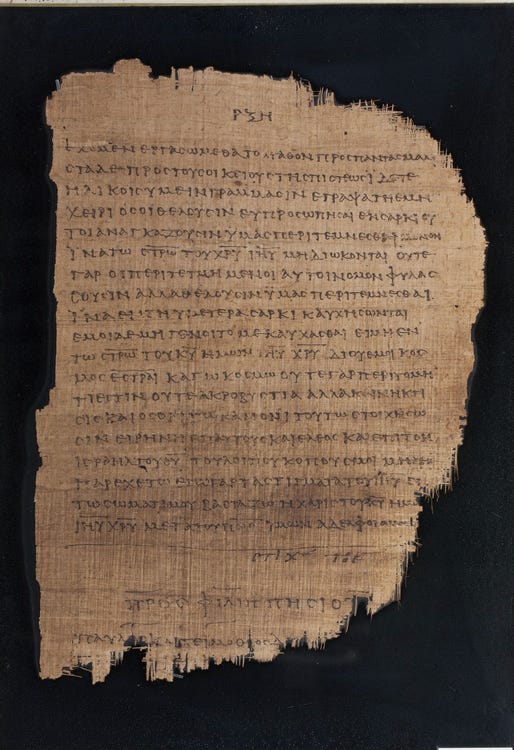 ΡΞΗ
ΕΧΟΜΕΝ ΕΡΓΑΣΩΜΕΘΑ ΤΟ ΑΓΑΘΟΝ ΠΡΟΣ ΠΑΝΤΑΣ ΜΑΛΙ
ΣΤΑ ΔΕ ΠΡΟΣ ΤΟΥΣ ΟΙΚΕΙΟΥΣ ΤΗΣ ΠΙΣΤΕΩΣ ΙΔΕΤΕ
ΗΛΙΚΟΙΣ ΥΜΕΙΝ ΓΡΑΜΜΑΣΙΝ ΕΓΡΑΨΑ ΤΗ ΕΜΗ
ΧΕΙΡΙ ΟΣΟΙ ΘΕΛΟΥΣΙΝ ΕΥΠΡΟΣΩΠΗΣΑΙ ΕΝ ΣΑΡΚΙ ΟΥ
ΤΟΙ ΑΝΑΓΚΑΖΟΥΣΙΝ ΥΜΑΣ ΠΕΡΙΤΕΜΝΕΣΘΕ ΜΟΝΟΝ
ΙΝΑ ΤΩ ΣΤΡΩ ΤΟΥ ΧΡΥ ΙΗΥ ΜΗ ΔΙΩΚΟΝΤΑΙ ΟΥΤΕ
ΓΑΡ ΟΙ ΠΕΡΙΤΕΤΜΗΜΕΝΟΙ ΑΥΤΟΙ ΝΟΜΟΝ ΦΥΛΑΣ
ΣΟΥΣΙΝ ΑΛΛΑ ΘΕΛΟΥΣΙΝ ΥΜΑΣ ΠΕΡΙΤΕΜΝΕΣΘΑΙ
ΙΝΑ ΕΝ ΤΗ ΥΜΕΤΕΡΑ ΣΑΡΚΙ ΚΑΥΧΗΣΩΝΤΑΙ
ΕΜΟΙ ΔΕ ΜΗ ΓΕΝΟΙΤΟ ΜΕ ΚΑΥΧΑΣΘΑΙ ΕΙ ΜΗ ΕΝ
ΤΩ ΣΤΡΩ ΤΟΥ ΚΥ ΗΜΩΝ ΙΗΥ ΧΡΥ ΔΙ ΟΥ ΕΜΟΙ ΚΟΣ
ΜΟΣ ΕΣΤΡΑΙ ΚΑΓΩ ΚΟΣΜΩ ΟΥΤΕ ΓΑΡ ΠΕΡΙΤΟΜΗ
ΤΙ ΕΣΤΙΝ ΟΥΤΕ ΑΚΡΟΒΥΣΤΙΑ ΑΛΛΑ ΚΑΙΝΗ ΚΤΙ
ΣΙΣ ΚΑΙ ΟΣΟΙ ΤΩ ΚΑΝΟΝΙ ΤΟΥΤΩ ΣΤΟΙΧΗΣΩ
ΣΙΝ ΕΙΡΗΝΗ ΕΠ ΑΥΤΟΥΣ ΚΑΙ ΕΛΕΟΣ ΚΑΙ ΕΠΙ ΤΟΝ
ΙΣΡΑΗΛ ΤΟΥ ΘΥ ΤΟΥ ΛΟΙΠΟΥ ΚΟΠΟΥΣ ΜΟΙ ΜΗΔΕΙΣ
ΠΑΡΕΧΕΤΩ ΕΓΩ ΓΑΡ ΤΑ ΣΤΙΓΜΑΤΑ ΤΟΥ ΙΗΥ ΕΝ
ΤΩ ΣΩΜΑΤΙ ΜΟΥ ΒΑΣΤΑΖΩ Η ΧΑΡΙΣ ΤΟΥ ΚΥ ΗΜΩΝ
ΙΗΥ ΧΡΥ ΜΕΤΑ ΤΟΥ ΠΝΣ ΥΜΩΝ ΑΔΕΛΦΟΙ ΑΜΗΝ
ΣΤΙΧ ΤΟΕ
ΠΡΟΣ ΦΙΛΙΠΠΗΣΙΟΥΣ
ΠΑΥΛΟΣ ΚΑΙ ΤΕΙΜΟΘΕΟΣ